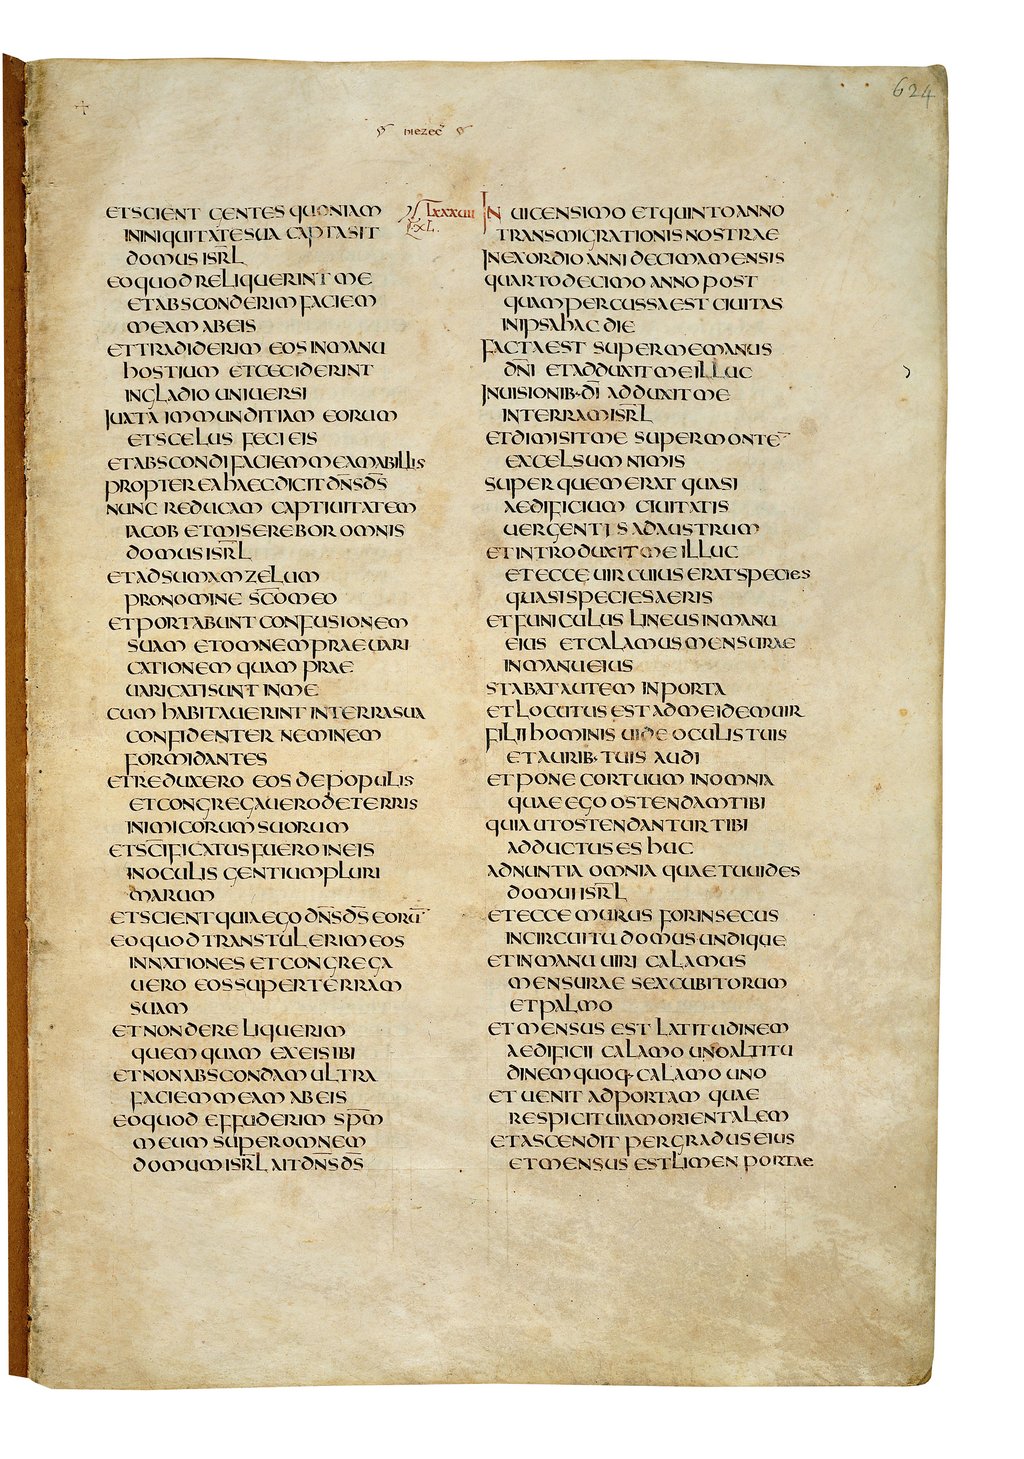 624
hiezec
ET SCIENT GENTES QUONIAM
IN INIQUITATE SUA CAPTA SIT
DOMUS ISRL
EO QUOD RELIQUERINT ME
ET ABSCONDERIM FACIEM
MEAM AB EIS
ET TRADIDERIM EOS IN MANU
HOSTIUM ET CECIDERINT
IN GLADIO UNIUERSI
IUXTA IMMUNDITIAM EORUM
ET SCELUS FECI EIS
ET ABSCONDI FACIEM MEAM AB ILLIS
PROPTEREA HAEC DICIT DNS DS
NUNC REDUCAM CAPTIUITATEM
IACOB ET MISEREBOR OMNIS
DOMUS ISRL
ET ADSUMAM ZELUM
PRO NOMINE SCO MEO
ET PORTABUNT CONFUSIONEM
SUAM ET OMNEM PRAEUARI
CATIONEM QUAM PRAE
UARICATI SUNT IN ME
CUM HABITAUERINT IN TERRA SUA
CONFIDENTER NEMINEM
FORMIDANTES
ET REDUXERO EOS DE POPULIS
ET CONGREGAUERO DE TERRIS
INIMICORUM SUORUM
ET SCIFICATUS FUERO IN EIS
IN OCULIS GENTIUM PLURI
MARUM
ET SCIENT QUIA EGO DNS DS EORU
EO QUOD TRANSTULERIM EOS
IN NATIONES ET CONGREGA
UERO EOS SUPER TERRAM
SUAM
ET NON DERELIQUERIM
QUEMQUAM EX EIS IBI
ET NON ABSCONDAM ULTRA
FACIEM MEAM AB EIS
EO QUOD EFFUDERIM SPM
MEUM SUPER OMNEM
DOMUM ISRL AIT DNS DS
LXXXIIII IN UICENSIMO ET QUINTO ANNO
TRANSMIGRATIONIS NOSTRAE
IN EXORDIO ANNI DECIMA MENSIS
QUARTODECIMO ANNO POST
QUAM PERCUSSA EST CIUITAS
IN IPSA HAC DIE
FACTA EST SUPER ME MANUS
DNI ET ADDUXIT ME ILLUC
IN UISIONIB· DI ADDUXIT ME
IN TERRAM ISRL
ET DIMISIT ME SUPER MONTE
EXCELSUM NIMIS
SUPER QUEM ERAT QUASI
AEDIFICIUM CIUITATIS
UERGENTIS AD AUSTRUM
ET INTRODUXIT ME ILLUC
ET ECCE UIR CUIUS ERAT SPECIES
QUASI SPECIES AERIS
ET FUNICULUS LINEUS IN MANU
EIUS ET CALAMUS MENSURAE
IN MANU EIUS
STABAT AUTEM IN PORTA
ET LOCUTUS EST AD ME IDEM UIR
FILII HOMINIS UIDE OCULIS TUIS
ET AURIB· TUIS AUDI
ET PONE COR TUUM IN OMNIA
QUAE EGO OSTENDAM TIBI
QUIA UT OSTENDANTUR TIBI
ADDUCTUS ES HUC
ADNUNTIA OMNIA QUAE TU UIDES
DOMUI ISRL
ET ECCE MURUS FORINSECUS
IN CIRCUITU DOMUS UNDIQUE
ET IN MANU UIRI CALAMUS
MENSURAE SEX CUBITORUM
ET PALMO
ET MENSUS EST LATITUDINEM
AEDIFICII CALAMO UNO ALTITU
DINEM QUOQ· CALAMO UNO
ET UENIT AD PORTAM QUAE
RESPICIT UIAM ORIENTALEM
ET ASCENDIT PER GRADUS EIUS
ET MENSUS EST LIMEN PORTAE